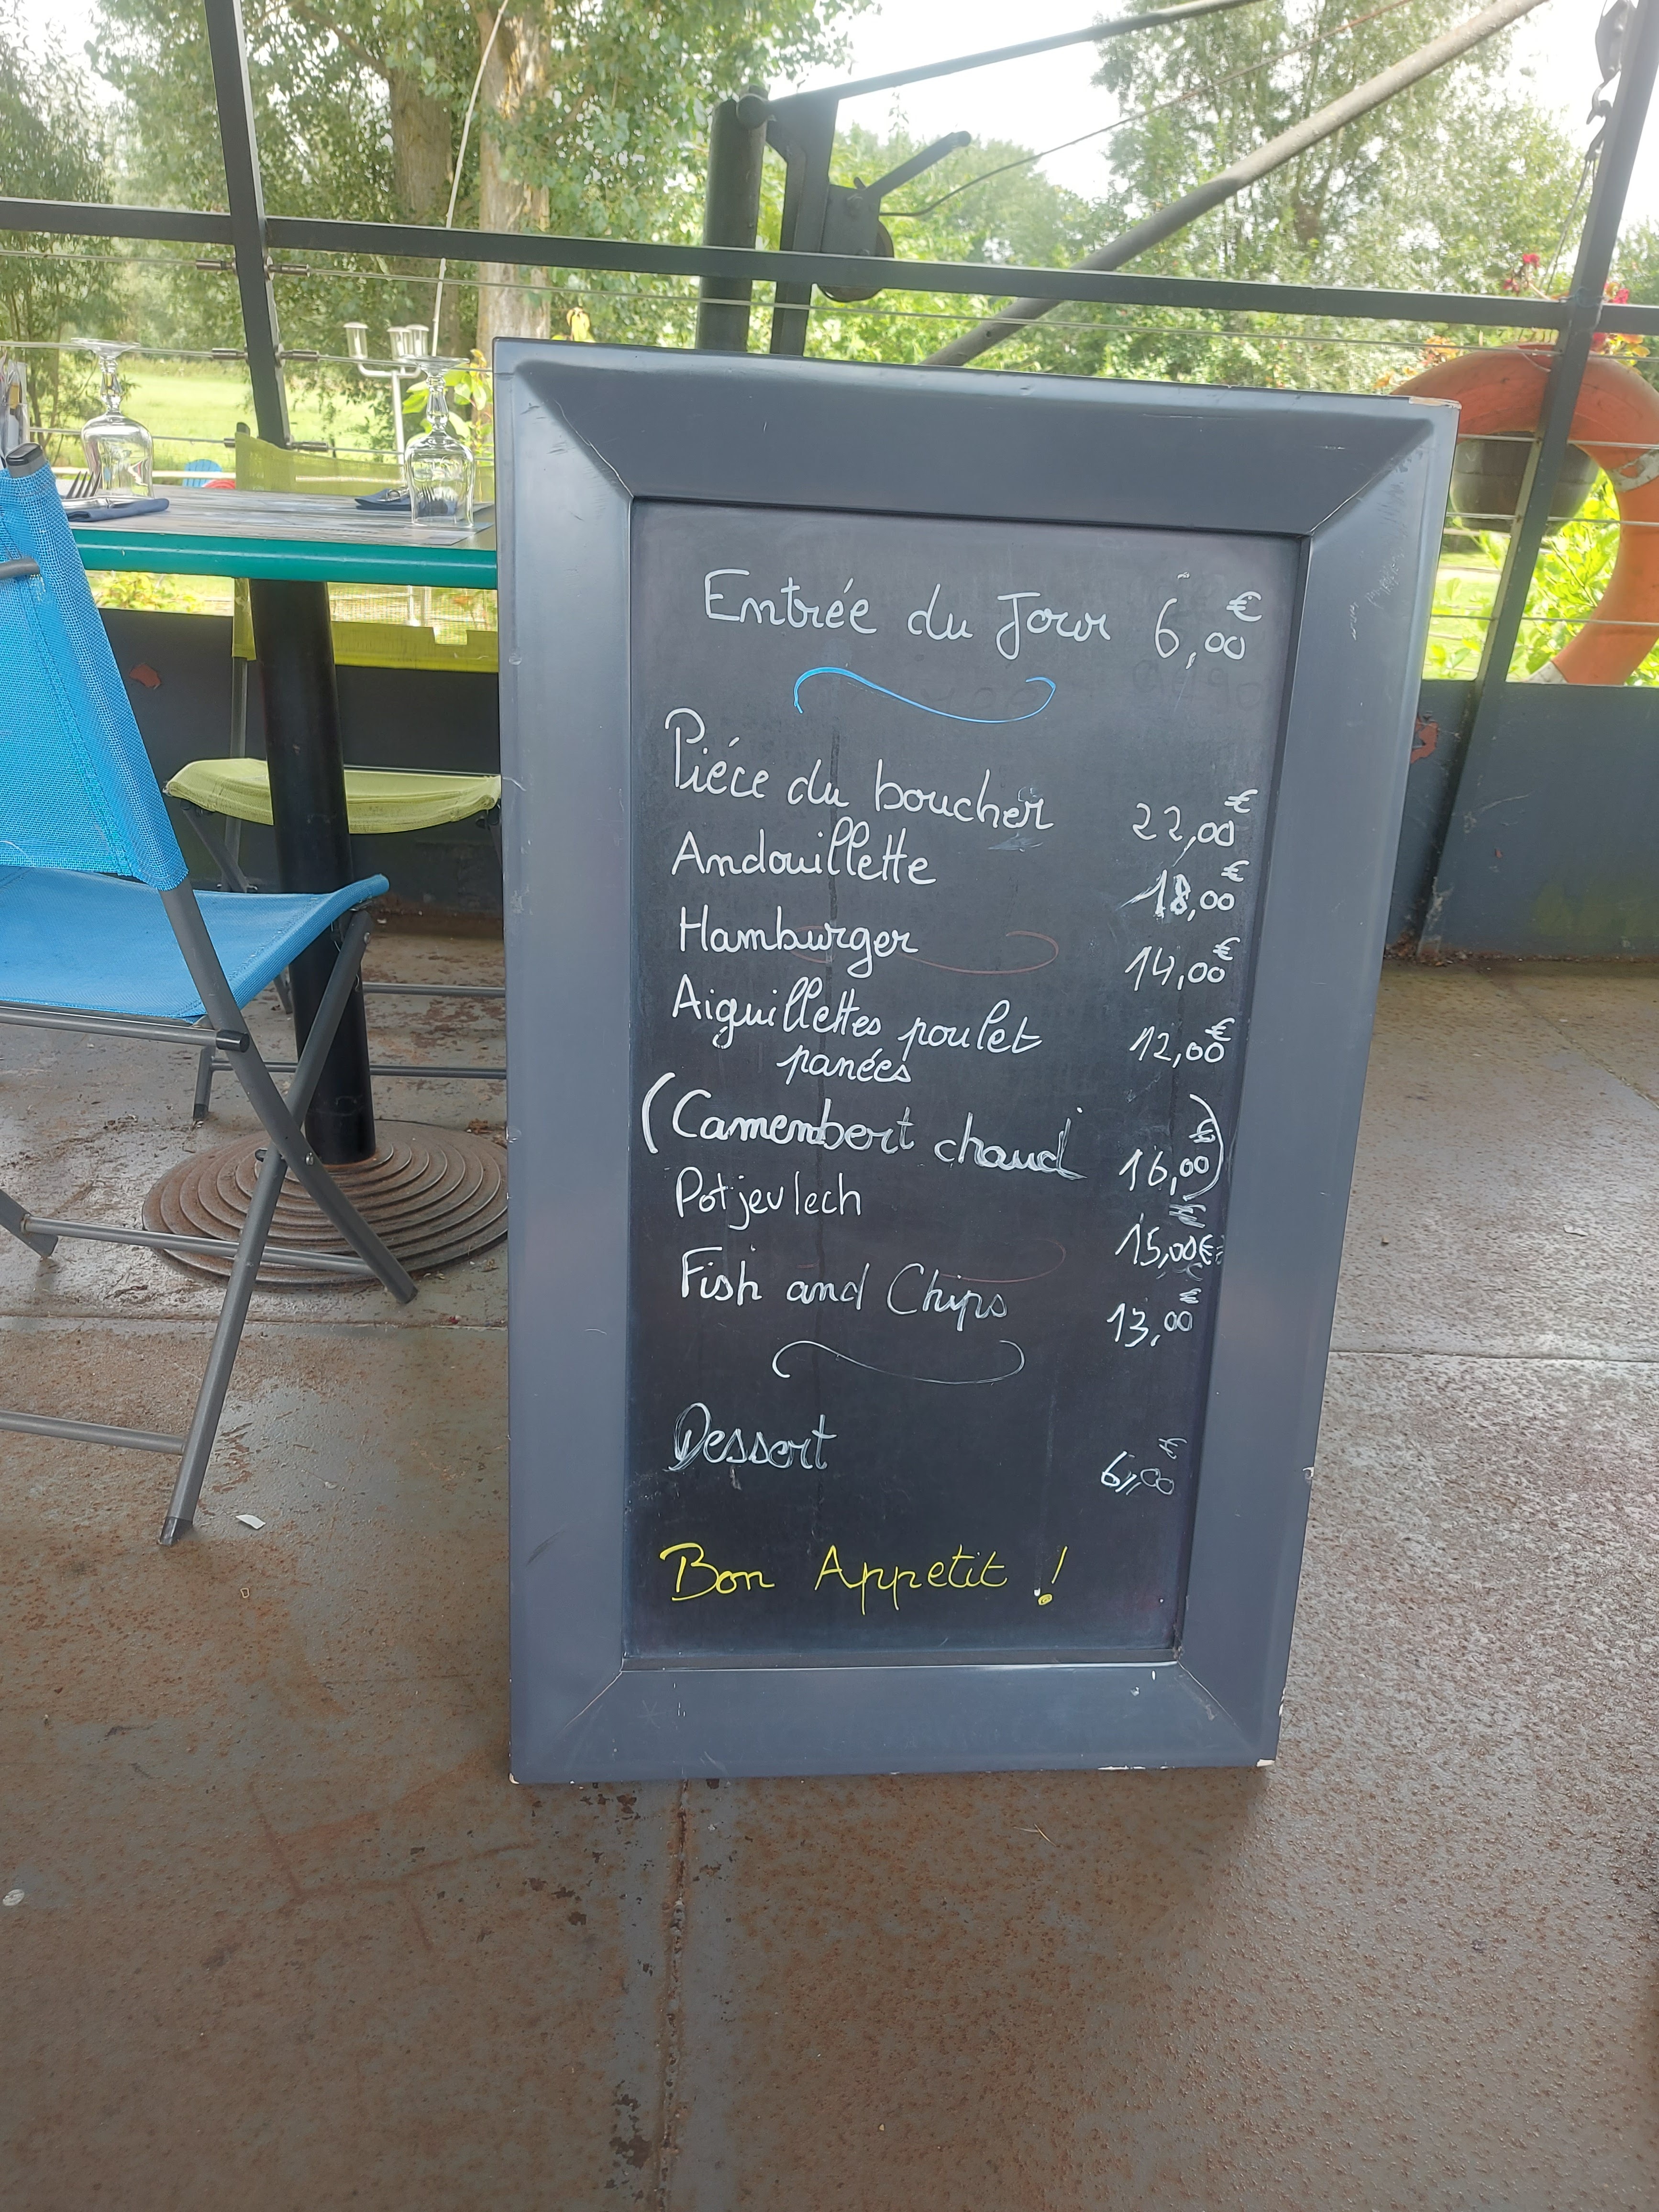 Entrée du Jour 6,00€
Piéce du boucher 22,00€
Andouillette 18,00€
Hamburger 14,00€
Aiguillettes poulet 12,00€
panées
(Camembert chaud 16,00€)
Potjevlech 15,00€
Fish and Chips 13,00€
Dessert 6,00€
Bon Appetit !